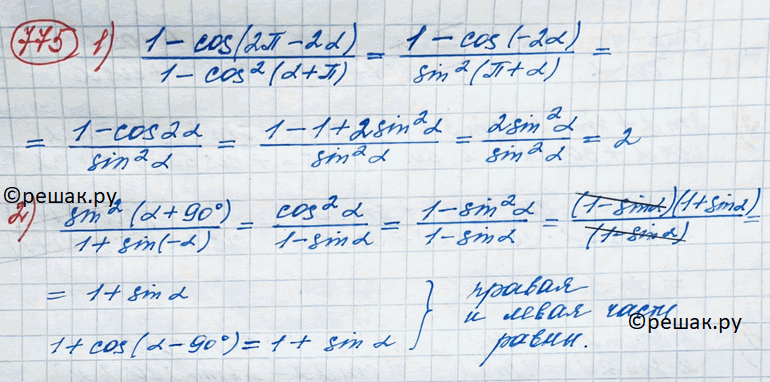 775 1) (1 - cos(2π - 2α))/(1 - cos²(α + π)) = (1 - cos(-2α))/(sin²(π + α)) =
= (1 - cos2α)/(sin²α) = (1 - 1 + 2sin²α)/(sin²α) = (2sin²α)/(sin²α) = 2
©решак.ру
2) (sin²(α + 90°))/(1 + sin(-α)) = (cos²α)/(1 - sinα) = (1 - sin²α)/(1 - sinα) = ((1 - sinα)(1 + sinα))/((1 - sinα)) =
= 1 + sinα
1 + cos(α - 90°) = 1 + sinα
} правая
и левая части
равны.
©решак.ру